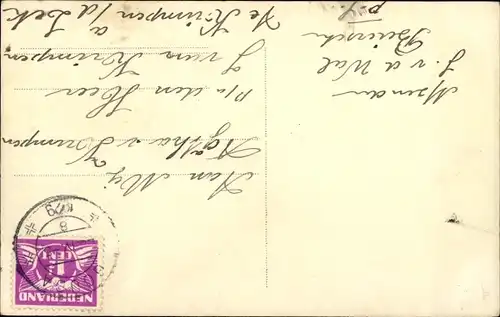 Afzender
J. v d Wal
Aan Mej
Agatha v Krimpen
p/a den Heer
J van Krimpen
a
Te Krimpen /d Lek
1
CENT
NEDERLAND